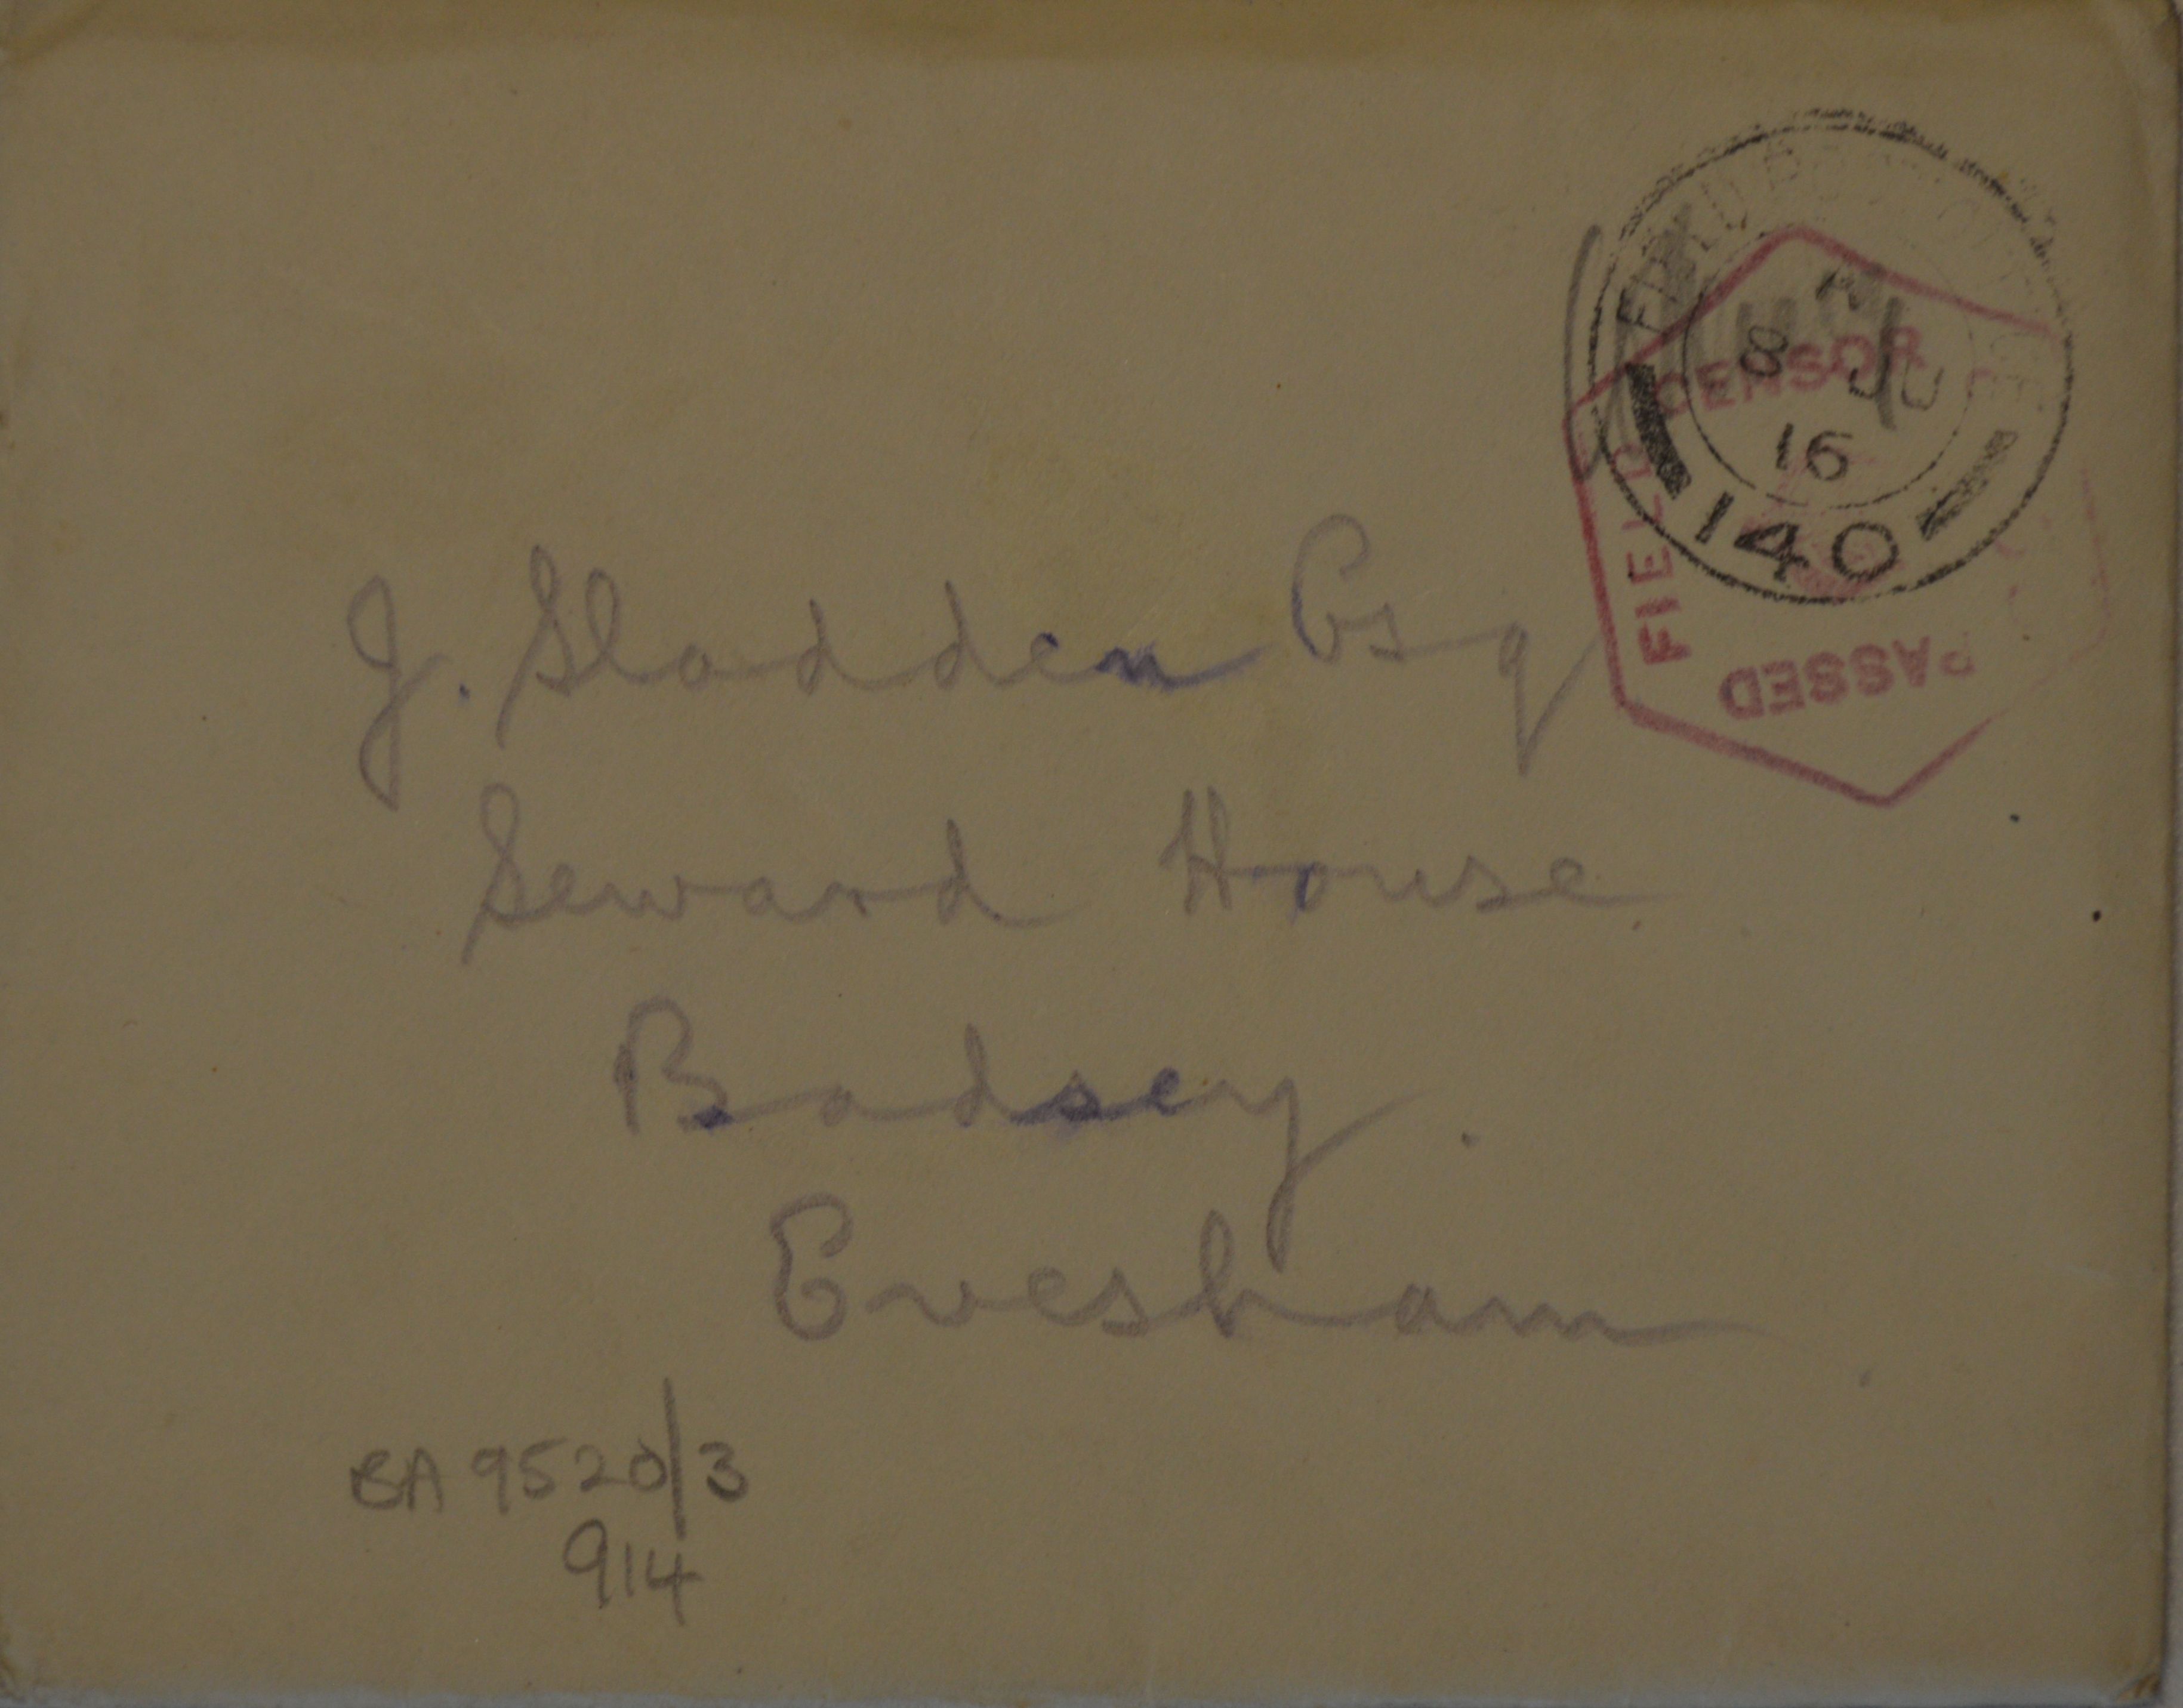 FIELD POST OFFICE
A
8 JU
16
140
PASSED FIELD CENSOR
J. Sladden Esq
Seward House
Badsey.
Evesham.
BA 9520/3
914